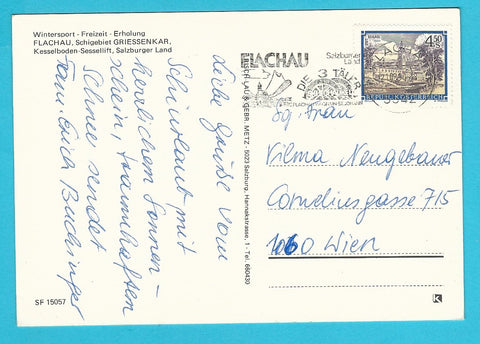 Wintersport - Freizeit - Erholung
FLACHAU, Schigebiet GRIESSENKAR,
Kesselboden-Sessellift, Salzburger Land
Liebe Grüße vom
Schiurlaub mit
herrlichem Sonnen-
schein, traumhaften
Schnee sendet
Fam. Erich Buchsinger
SF 15057
& GEBR. METZ - 5023 Salzburg, Hannakstrasse, 1 - Tel. 660430
FLACHAU
Salzburger
Land
DIE 3 TÄLER
4.50
REPUBLIK ÖSTERREICH
Sg. Frau
Vilma Neugebauer
Corneliusgasse 7/5
1060 Wien
K